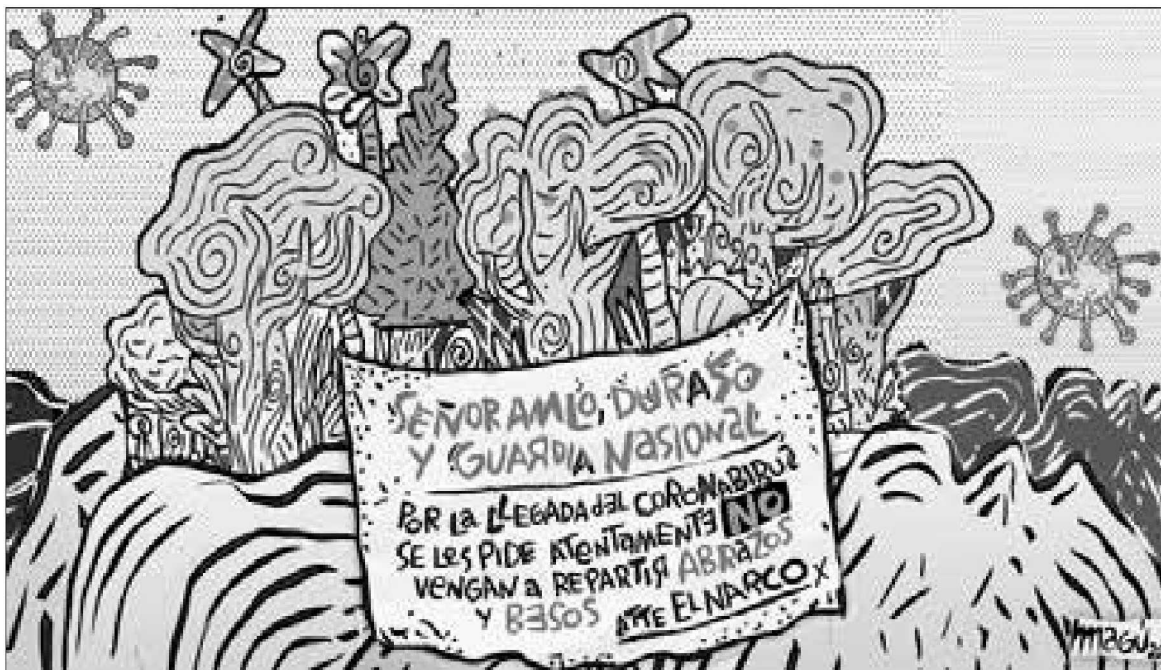 SEÑOR AMLO, DURASO
Y GUARDIA NASIONAL
POR LA LLEGADA dEL CORONABIRUS
SE LES PIDE ATENTAMENTE NO
VENGAN a REPARTIR ABRaZOS
Y BESOS ATTE EL NARCO X
magú